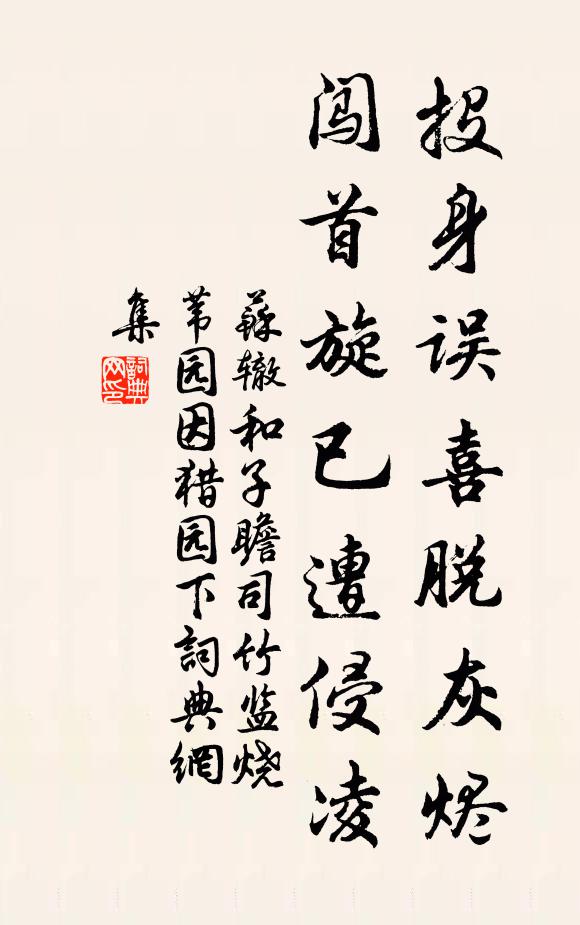 投身误喜脱灰烬
闯首旋已遭侵凌
蘇辙和子瞻司竹监烧
苇园因猎园下詞典網
集
詞典
网印